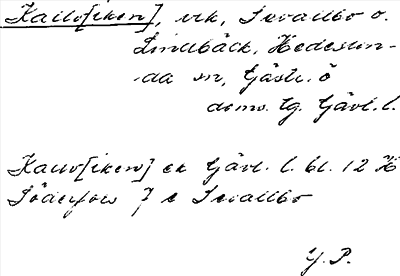 Kallv[iken], vik, Sevallbo o.
Lindbäck, Hedesun-
da sn, Gästr. ö
doms. tg. Gävl. l.
Kallv[iken] ek Gävl. l. bl. 12 H
Söderfors } e Sevallbo
G. P.